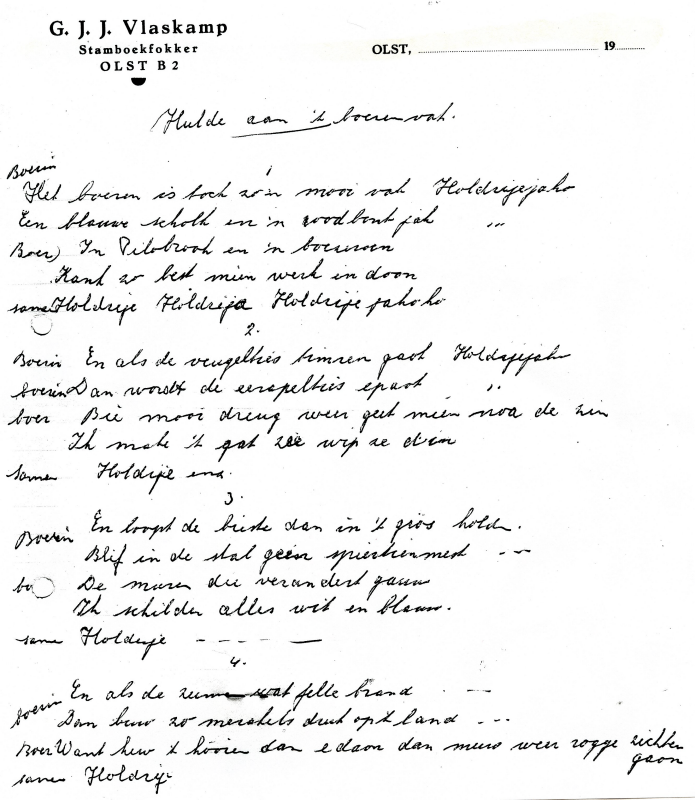 G. J. J. Vlaskamp
Stamboekfokker
OLST B 2
OLST, 19
Hulde aan 't boerenvak.
Boerin
1
Het boeren is toch zo'n mooi vak Holdrijejaho
Een blauwe scholk en 'n roodbont jak ,,
Boer) In Pilobrook en 'n boezeroen
Kank zo best mien werk in doon
samen Holdrije Holdrija Holdrije jahoho
2.
Boerin En als de veugelties timren goot Holdrijejaho
boerin Dan wordt de eerapelties epoot ,,
boer Bie mooi dreug weer geet mien noa de zin
Ik make 't gat zee wip ze d'r in
samen Holdrije enz.
3.
Boerin En loopt de bieste dan in 't gros holdr.
Blif in de stal geen spiertien mest - -
bo De muren die verandert gauw
Ik schilder alles wit en blauw.
samen Holdrije - - - - —
4.
boerin En als de zunne wat felle brand - -
Dan buw zo merakels druk op 't land - - -
Boer Want hew 't hooien dan edaon dan muw weer rogge zichten
gaon
samen Holdrije